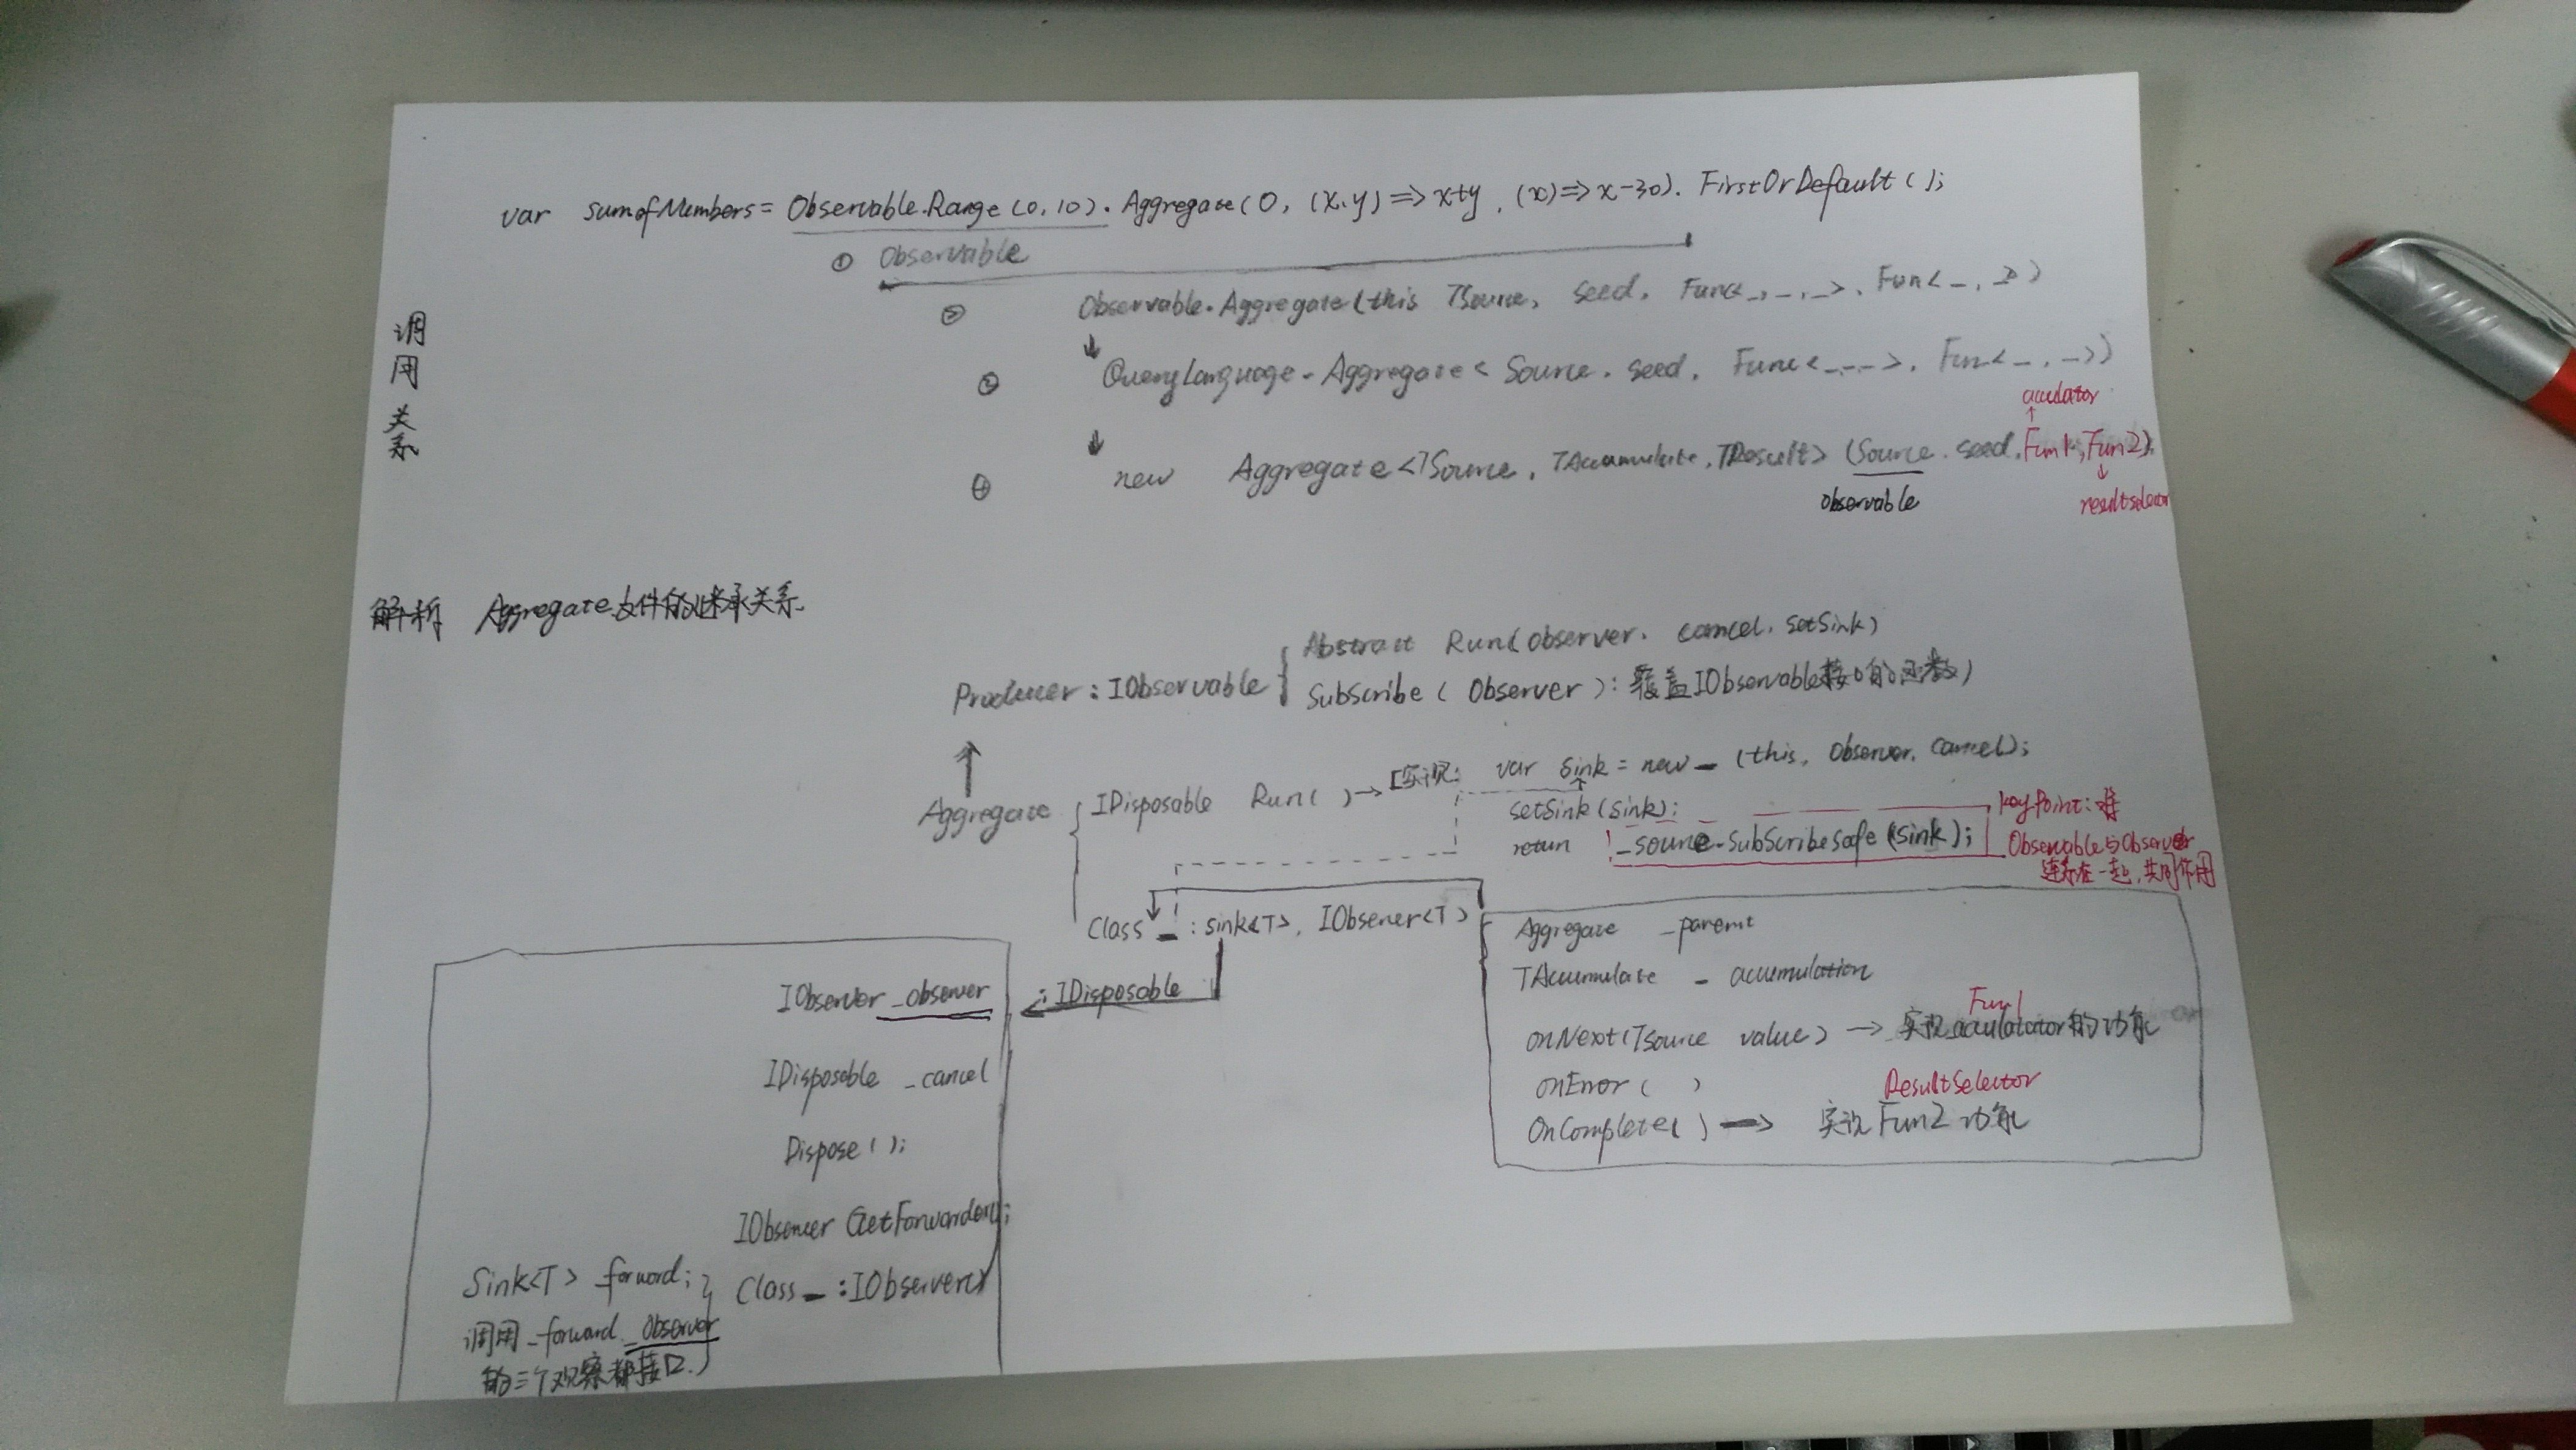 var sumofMumbers = Observable.Range(0,10). Aggregate(0, (x,y)=>x+y, (x)=>x-30). FirstOrDefault();
① Observable
② Observable.Aggregate(this TSource, seed, Func<_,_,_>, Fun<_,_>)
调用关系
↓
③ QueryLanguage.Aggregate< Source, seed, Func<_,_,_>, Fun<_,_>)
↓
④ new Aggregate<TSource, TAccumulate, TResult> (Source, seed, Fun1, Fun2);
↑
observable
↓
resultselector
解析 Aggregate文件的继承关系
Producer : IObservable
Abstract Run(observer, cancel, setSink)
Subscribe( Observer ): 覆盖IObservable接口的函数)
↑
Aggregate
IDisposable Run( ) → [实现: var sink = new _ (this, Observer, cancel);
setSink(sink);
return _source.SubScribeSafe(sink);
key Point: 将
Observable与Observer
连系在一起,共同作用
Class _ : sink<T>, IObserver<T>
: IDisposable
Aggregate _parent
TAccumulate _accumulation
Fun1
onNext(TSource value) → 实现 的功能
onError( )
ResultSelector
OnComplete( ) → 实现 Fun2 功能
IObserver _observer
IDisposable _cancel
Dispose();
IObserver GetForwarder();
Class _ : IObserver<T>
Sink<T> _forward;
调用 _forward._observer
的三个观察者接口.